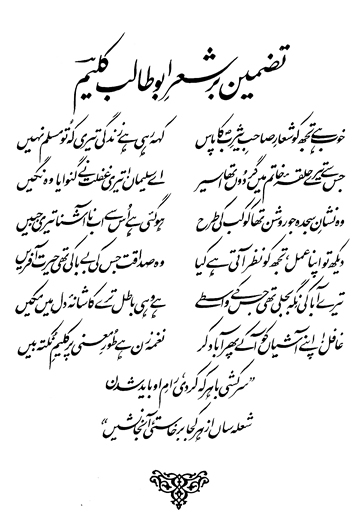 تضمین بر شعرِ ابوطالب کلیمؔ
خوب ہے تجھ کو شعارِ صاحبِ یثرِبؐ کا پاس کہہ رہی ہے زندگی تیری کہ تُو مسلم نہیں
جس سے تیرے حلقۂ خاتم میں گردُوں تھا اسیر اے سلیماں! تیری غفلت نے گنوایا وہ نگیں
وہ نشانِ سجدہ جو روشن تھا کوکب کی طرح ہوگئی ہے اُس سے اب ناآشنا تیری جبیں
دیکھ تو اپنا عمل، تجھ کو نظر آتی ہے کیا وہ صداقت جس کی بے باکی تھی حیرت آفریں
تیرے آبا کی نگہ بجلی تھی جس کے واسطے ہے وہی باطل ترے کاشانۂ دل میں مکیں
غافل! اپنے آشیاں کو آ کے پھر آباد کر نغمہ زن ہے طُورِ معنی پر کلیمِ نکتہ بیں
”سرکشی باہر کہ کردی رامِ او باید شدن
شعلہ ساں از ہر کجا برخاستی، آنجانشیں“